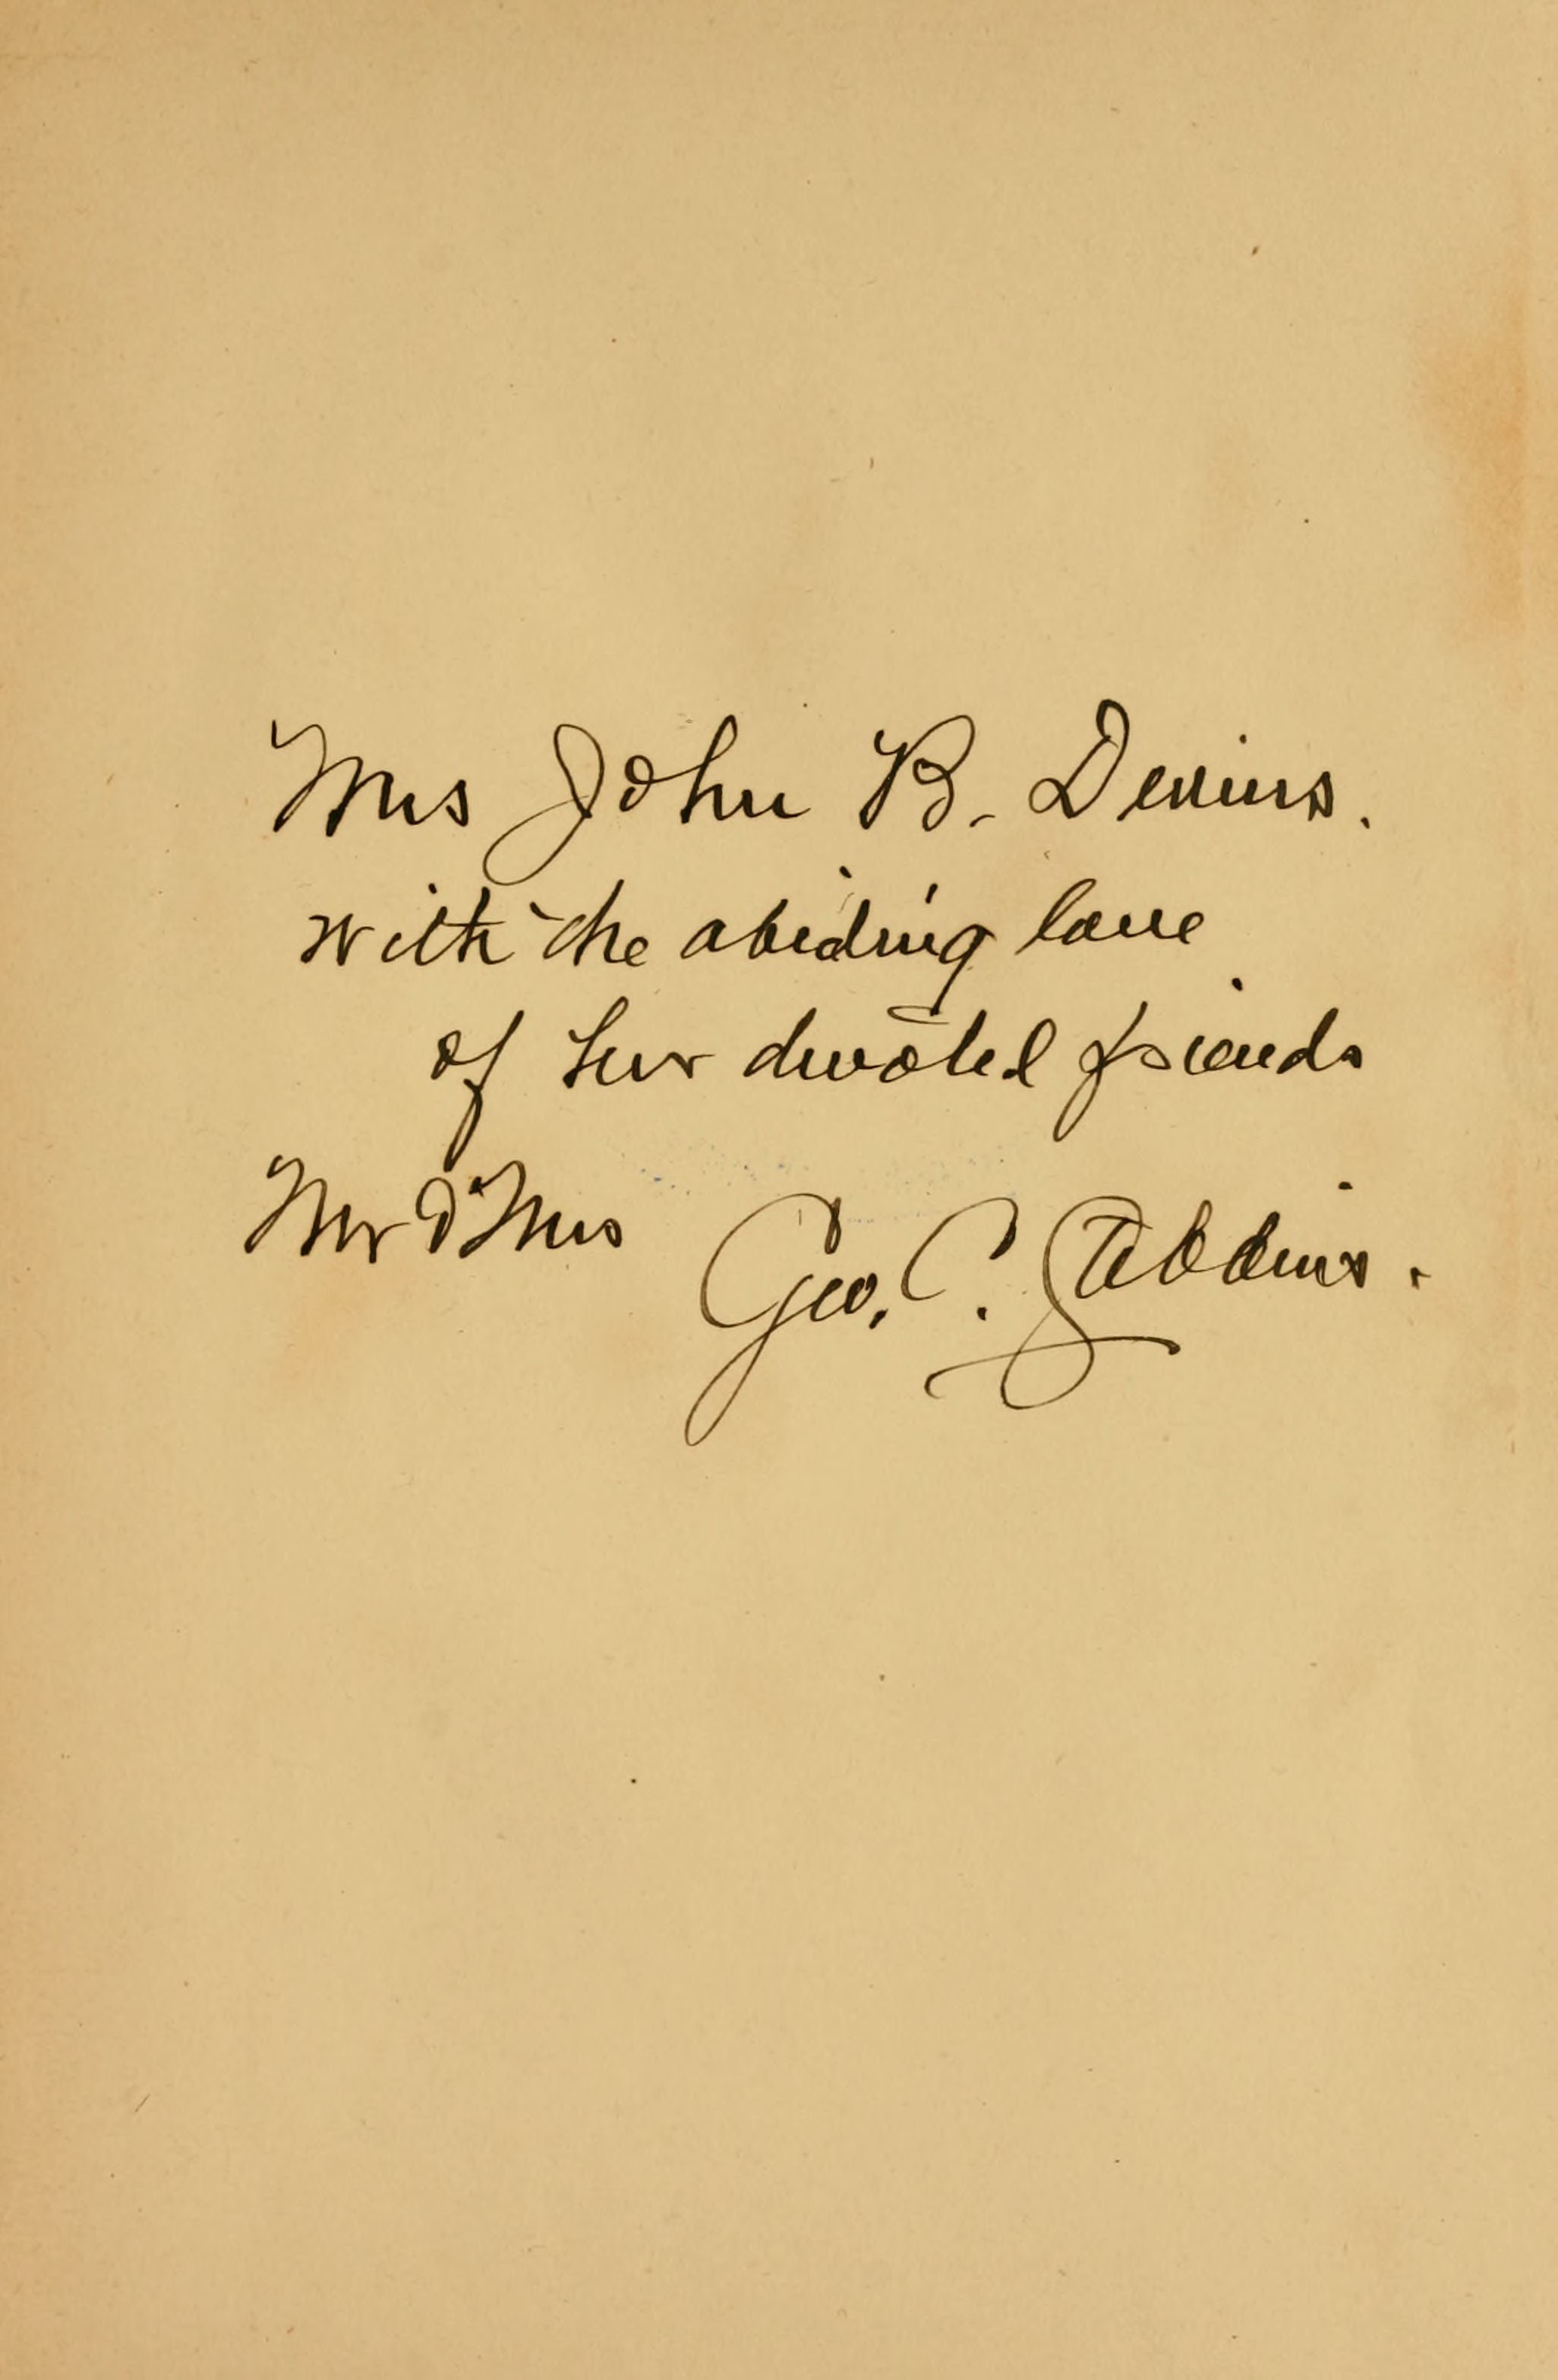 Mrs John B. Devins.
with the abiding love
of her devoted friends
Mr & Mrs Geo. C. Stebbins.